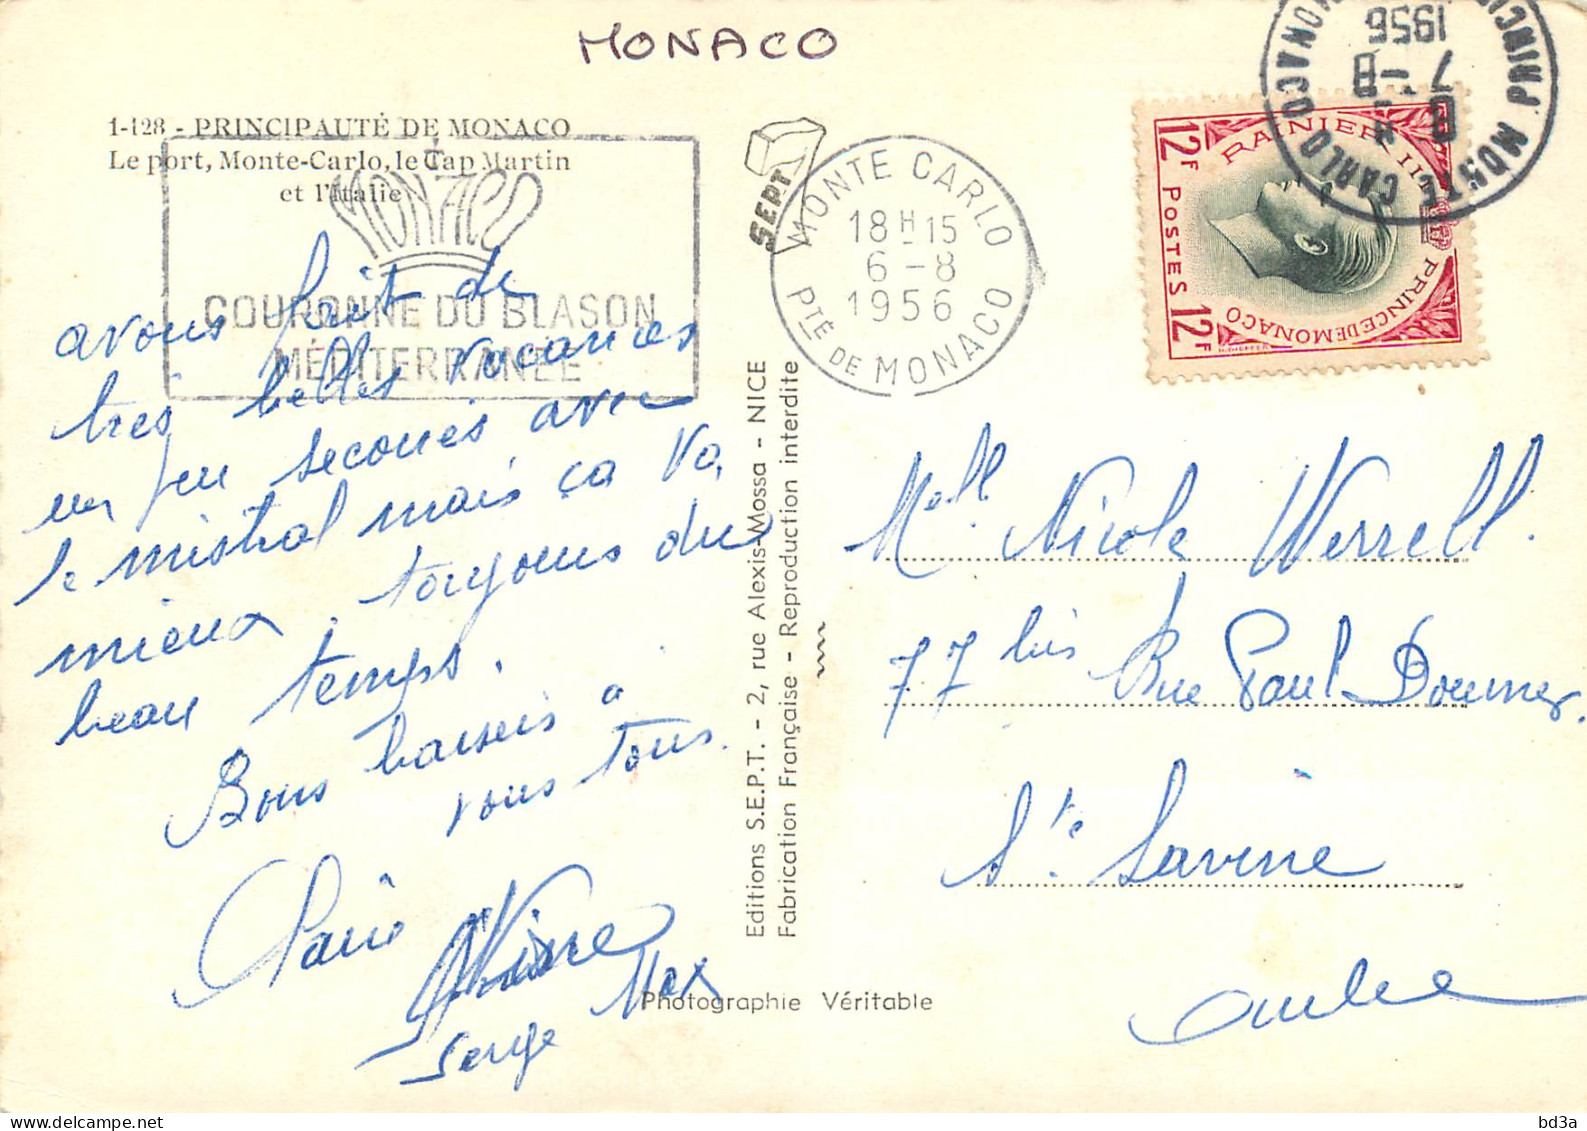 MONACO
1-128 - PRINCIPAUTÉ DE MONACO
Le port, Monte-Carlo, le Cap Martin
et l'Italie
MONACO
COURONNE DU BLASON
MÉDITERRANÉE
SEPT
MONTE CARLO
18H-15
6-8
1956
PTÉ DE MONACO
RAINIER III PRINCE DE MONACO
12F POSTES 12F
MONTE CARLO
7-8
1956
avons fait de
très belles vacances
un peu secoués avec
le mistral mais ça va
mieux, toujours du
beau temps.
Bons baisers à
vous tous.
Pierre
Max
Serge
Editions S.E.P.T. - 2, rue Alexis-Mossa - NICE
Fabrication Française - Reproduction interdite
Photographie Véritable
Melle Nicole Werrell.
77 bis Rue Paul Doumer.
Ste Savine
Aube
bd3a